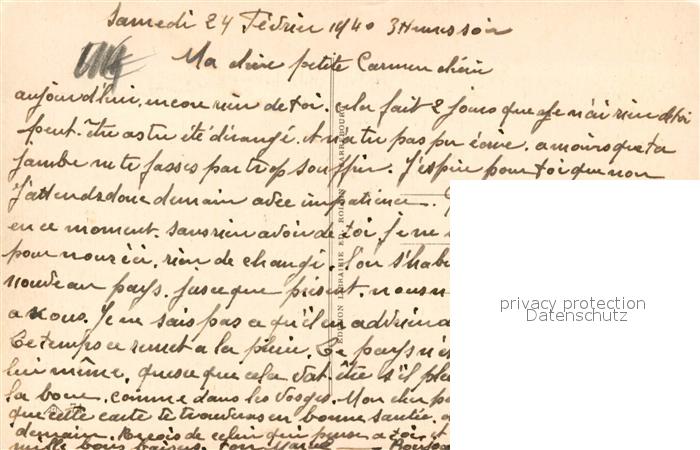 Samedi 24 Février 1940 3 Heures soir
Ma chère petite Carmen chérie
aujourd'hui, encore rien de toi. cela fait 2 jours que je n'ai rien de toi
peut-être as tu été dérangé. et n'a tu pas pu écrire. a moins que ta
jambe ne te fasses par trop souffrir. J'espère pour toi que non
J'attends donc demain avec impatience.
en ce moment. sans rien avoir de toi. je ne
pour nous ici, rien de changé. l'on s'habi
nouveau pays. jusque présent. nous n
a nous. Je ne sais pas ce qu'il en adviend
Le temps ce remet a la pluie. Le pays n'es
lui même. quesque cela doit être s'il pleu
la boue. comme dans les Vosges. Mon cher
que cette carte te trouveras en bonne santée.
demain. Reçois de celui qui pense a toi et
mille bons baisers. ton
EDITION LIBRAIRIE ED. SARREBOURG
privacy protection
Datenschutz